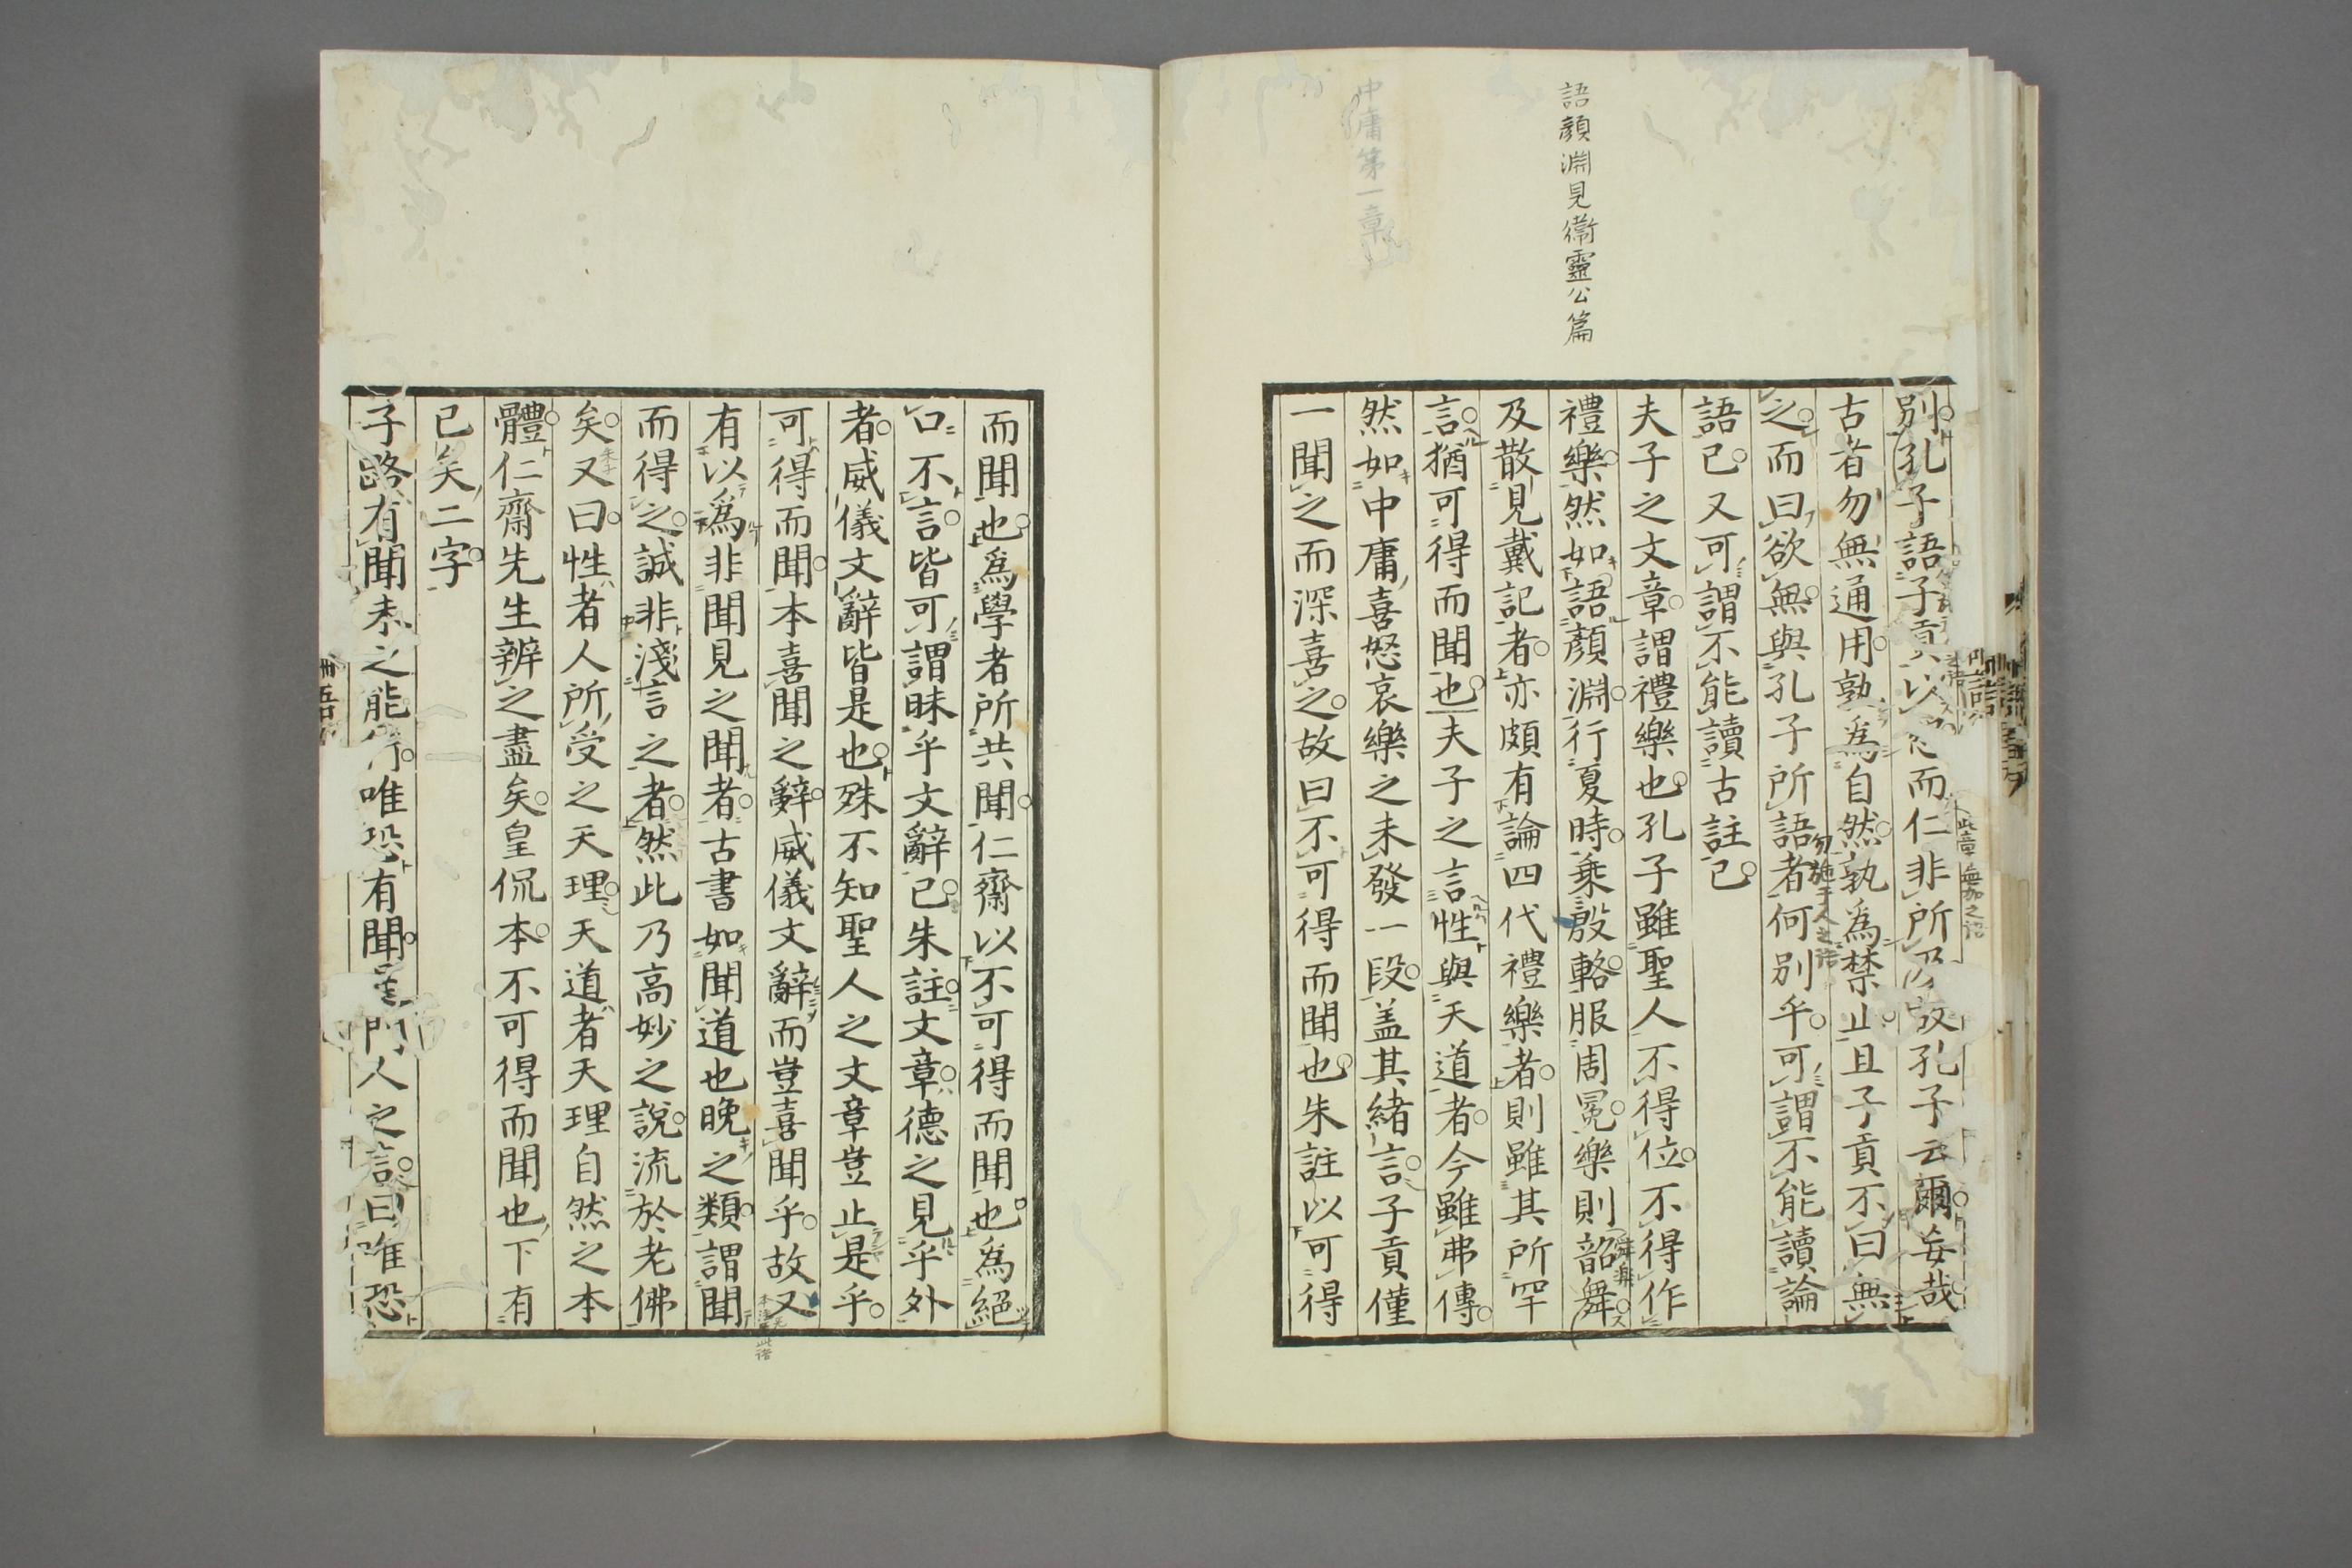 語顏淵見衞靈公篇
中庸第一章
別孔子語子貢以而仁非所及故孔子云爾妄哉
古者勿無通用孰爲自然孰爲禁止且子貢不曰無
之而曰欲無與孔子所語者何別乎可謂不能讀論
語已又可謂不能讀古註已
夫子之文章謂禮樂也孔子雖聖人不得位不得作
禮樂然如語顏淵行夏時乘殷輅服周冕樂則韶舞
及散見戴記者亦頗有論四代禮樂者則雖其所罕
言猶可得而聞也夫子之言性與天道者今雖弗傳
然如中庸喜怒哀樂之未發一段蓋其緒言子貢僅
一聞之而深喜之故曰不可得而聞也朱註以可得
而聞也爲學者所共聞仁齋以不可得而聞也爲絕
口不言皆可謂昧乎文辭已朱註文章德之見乎外
者威儀文辭皆是也殊不知聖人之文章豈止是乎
可得而聞本喜聞之辭威儀文辭而豈喜聞乎故又
有以爲非聞見之聞者古書如聞道也晚之類謂聞
而得之誠非淺言之者然此乃高妙之說流於老佛
矣又曰性者人所受之天理天道者天理自然之本
體仁齋先生辨之盡矣皇侃本不可得而聞也下有
已矣二字
子路有聞未之能行唯恐有聞門人之言曰唯恐